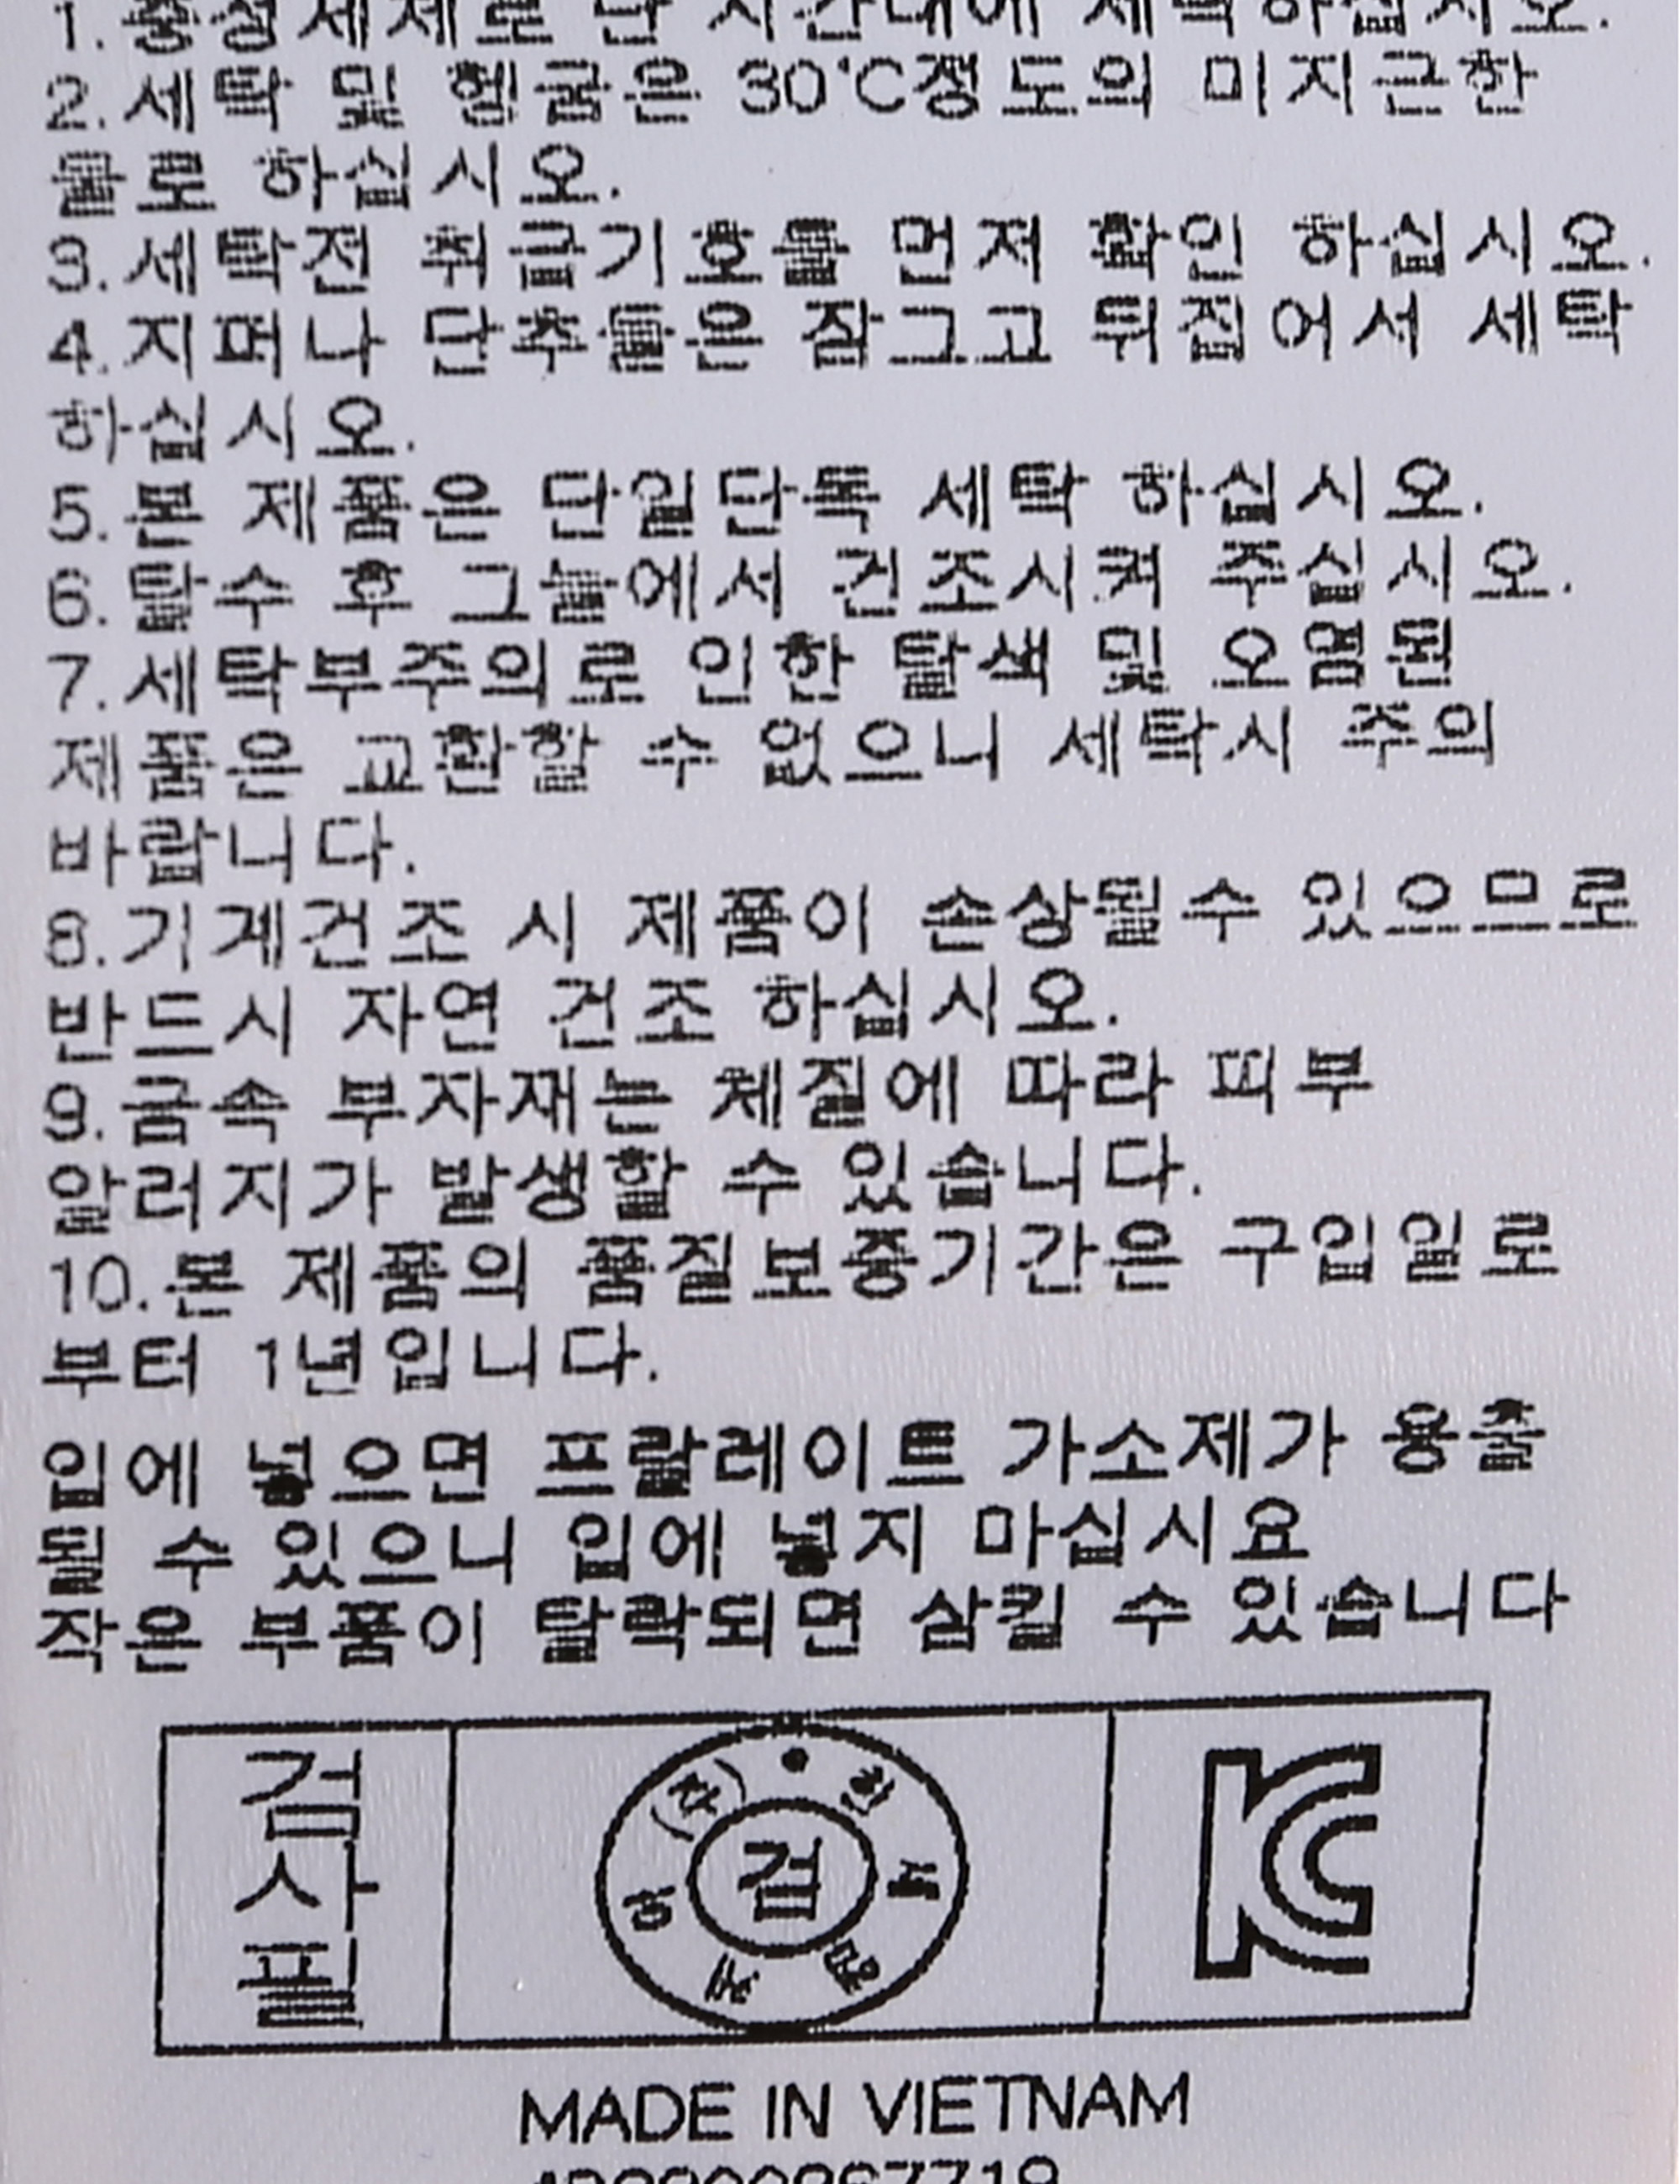 1.중성세제로 단 시간내에 세탁하십시오.
2.세탁 및 헹굼은 30°C정도의 미지근한
물로 하십시오.
3.세탁전 취급기호를 먼저 확인 하십시오.
4.지퍼나 단추들은 잠그고 뒤집어서 세탁
하십시오.
5.본 제품은 단일단독 세탁 하십시오.
6.탈수 후 그늘에서 건조시켜 주십시오.
7.세탁부주의로 인한 탈색 및 오염된
제품은 교환할 수 없으니 세탁시 주의
바랍니다.
8.기계건조 시 제품이 손상될수 있으므로
반드시 자연 건조 하십시오.
9.금속 부자재는 체질에 따라 피부
알러지가 발생할 수 있습니다.
10.본 제품의 품질보증기간은 구입일로
부터 1년입니다.
입에 넣으면 프탈레이트 가소제가 용출
될 수 있으니 입에 넣지 마십시요
작은 부품이 탈락되면 삼킬 수 있습니다
검사필
검
KC
MADE IN VIETNAM